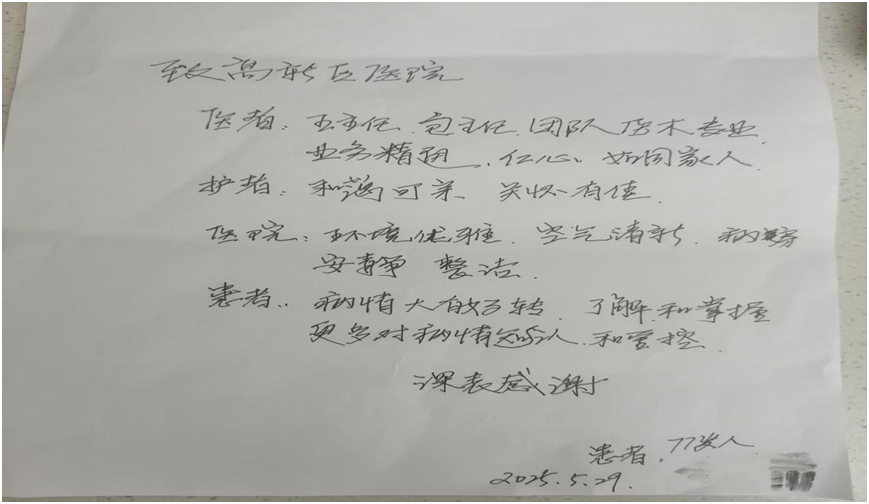 致高新区医院
医者：王主任、包主任、团队医术专业
业务精明、仁心、如同家人
护者：和蔼可亲、关怀有佳
医院：环境优雅、空气清新、病房
安静 整洁
患者：病情大有好转、了解和掌握
更多对病情 和管控
深表感谢
患者：
2025.5.29.